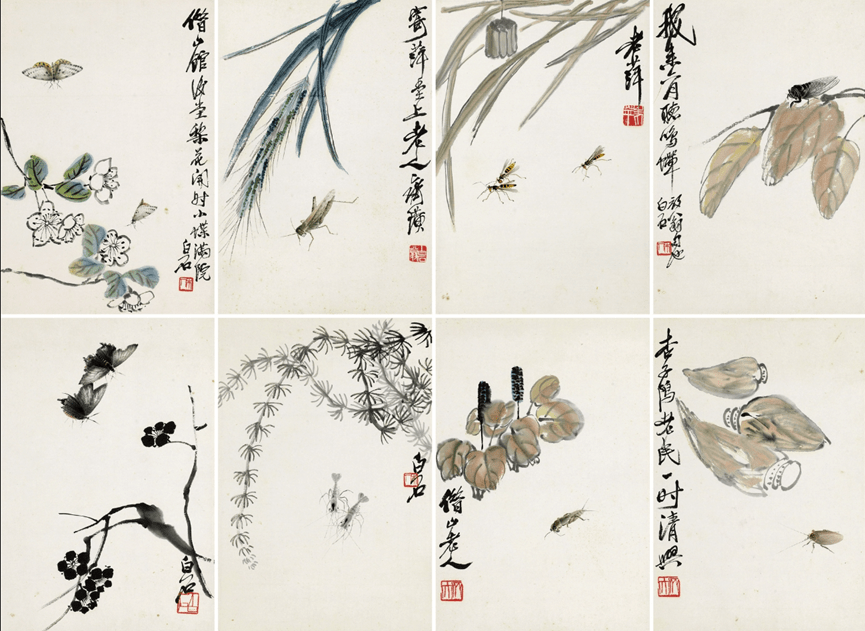 借山館後堂梨花開时小蝶滿院
白石
寄萍堂上老人齊璜
老萍
聽鳴蟬
白石
白石
白石
借山老人
杏子隖老民一时清興